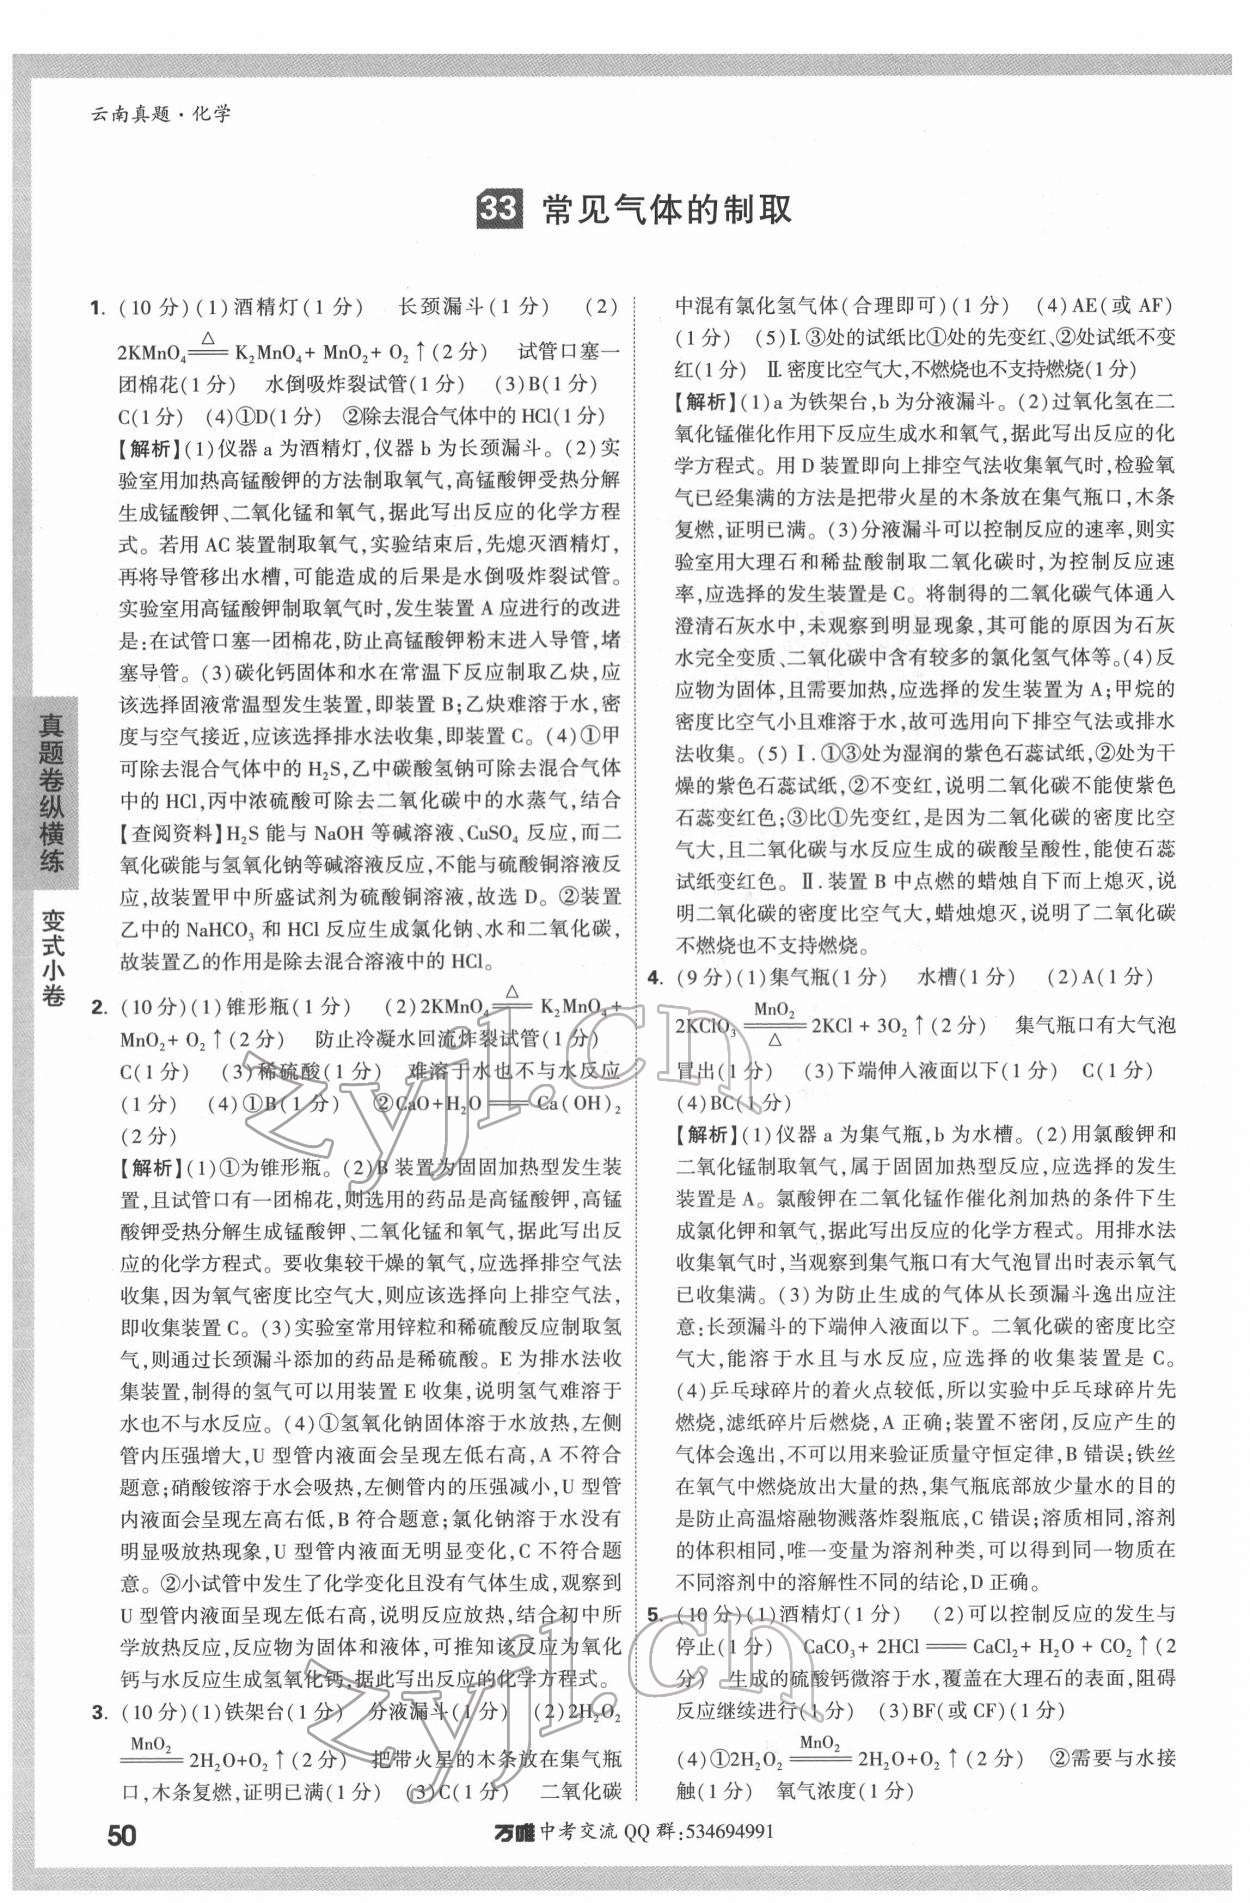 云南真题·化学
33 常见气体的制取
1. (10分)(1)酒精灯(1分) 长颈漏斗(1分) (2)
2KMnO₄ ≜ K₂MnO₄+ MnO₂+ O₂↑(2分) 试管口塞一
团棉花(1分) 水倒吸炸裂试管(1分) (3)B(1分)
C(1分) (4)①D(1分) ②除去混合气体中的HCl(1分)
【解析】(1)仪器a为酒精灯,仪器b为长颈漏斗。(2)实
验室用加热高锰酸钾的方法制取氧气,高锰酸钾受热分解
生成锰酸钾、二氧化锰和氧气,据此写出反应的化学方程
式。若用AC装置制取氧气,实验结束后,先熄灭酒精灯,
再将导管移出水槽,可能造成的后果是水倒吸炸裂试管。
实验室用高锰酸钾制取氧气时,发生装置A应进行的改进
是:在试管口塞一团棉花,防止高锰酸钾粉末进入导管,堵
塞导管。(3)碳化钙固体和水在常温下反应制取乙炔,应
该选择固液常温型发生装置,即装置B;乙炔难溶于水,密
度与空气接近,应该选择排水法收集,即装置C。(4)①甲
可除去混合气体中的H₂S,乙中碳酸氢钠可除去混合气体
中的HCl,丙中浓硫酸可除去二氧化碳中的水蒸气,结合
【查阅资料】H₂S能与NaOH等碱溶液、CuSO₄反应,而二
氧化碳能与氢氧化钠等碱溶液反应,不能与硫酸铜溶液反
应,故装置甲中所盛试剂为硫酸铜溶液,故选D。②装置
乙中的NaHCO₃和HCl反应生成氯化钠、水和二氧化碳,
故装置乙的作用是除去混合溶液中的HCl。
2. (10分)(1)锥形瓶(1分) (2)2KMnO₄ ≜ K₂MnO₄+
MnO₂+ O₂↑(2分) 防止冷凝水回流炸裂试管(1分)
C(1分) (3)稀硫酸(1分) 难溶于水也不与水反应
(1分) (4)①B(1分) ②CaO+H₂O ══ Ca(OH)₂
(2分)
【解析】(1)①为锥形瓶。(2)B装置为固固加热型发生装
置,且试管口有一团棉花,则选用的药品是高锰酸钾,高锰
酸钾受热分解生成锰酸钾、二氧化锰和氧气,据此写出反
应的化学方程式。要收集较干燥的氧气,应选择排空气法
收集,因为氧气密度比空气大,则应该选择向上排空气法,
即收集装置C。(3)实验室常用锌粒和稀硫酸反应制取氢
气,则通过长颈漏斗添加的药品是稀硫酸。E为排水法收
集装置,制得的氢气可以用装置E收集,说明氢气难溶于
水也不与水反应。(4)①氢氧化钠固体溶于水放热,左侧
管内压强增大,U型管内液面会呈现左低右高,A不符合
题意;硝酸铵溶于水会吸热,左侧管内的压强减小,U型管
内液面会呈现左高右低,B符合题意;氯化钠溶于水没有
明显吸放热现象,U型管内液面无明显变化,C不符合题
意。②小试管中发生了化学变化且没有气体生成,观察到
U型管内液面呈现左低右高,说明反应放热,结合初中所
学放热反应,反应物为固体和液体,可推知该反应为氧化
钙与水反应生成氢氧化钙,据此写出反应的化学方程式。
3. (10分)(1)铁架台(1分) 分液漏斗(1分) (2)2H₂O₂
MnO₂
══ 2H₂O+O₂↑(2分) 把带火星的木条放在集气瓶
口,木条复燃,证明已满(1分) (3)C(1分) 二氧化碳
中混有氯化氢气体(合理即可)(1分) (4)AE(或AF)
(1分) (5)Ⅰ.③处的试纸比①处的先变红、②处试纸不变
红(1分) Ⅱ.密度比空气大,不燃烧也不支持燃烧(1分)
【解析】(1)a为铁架台,b为分液漏斗。(2)过氧化氢在二
氧化锰催化作用下反应生成水和氧气,据此写出反应的化
学方程式。用D装置即向上排空气法收集氧气时,检验氧
气已经集满的方法是把带火星的木条放在集气瓶口,木条
复燃,证明已满。(3)分液漏斗可以控制反应的速率,则实
验室用大理石和稀盐酸制取二氧化碳时,为控制反应速
率,应选择的发生装置是C。将制得的二氧化碳气体通入
澄清石灰水中,未观察到明显现象,其可能的原因为石灰
水完全变质、二氧化碳中含有较多的氯化氢气体等。(4)反
应物为固体,且需要加热,应选择的发生装置为A;甲烷的
密度比空气小且难溶于水,故可选用向下排空气法或排水
法收集。(5)Ⅰ.①③处为湿润的紫色石蕊试纸,②处为干
燥的紫色石蕊试纸,②不变红,说明二氧化碳不能使紫色
石蕊变红色;③比①先变红,是因为二氧化碳的密度比空
气大,且二氧化碳与水反应生成的碳酸呈酸性,能使石蕊
试纸变红色。Ⅱ.装置B中点燃的蜡烛自下而上熄灭,说
明二氧化碳的密度比空气大,蜡烛熄灭,说明了二氧化碳
不燃烧也不支持燃烧。
4. (9分)(1)集气瓶(1分) 水槽(1分) (2)A(1分)
MnO₂
2KClO₃ ══ 2KCl + 3O₂↑(2分) 集气瓶口有大气泡
△
冒出(1分) (3)下端伸入液面以下(1分) C(1分)
(4)BC(1分)
【解析】(1)仪器a为集气瓶,b为水槽。(2)用氯酸钾和
二氧化锰制取氧气,属于固固加热型反应,应选择的发生
装置是A。氯酸钾在二氧化锰作催化剂加热的条件下生
成氯化钾和氧气,据此写出反应的化学方程式。用排水法
收集氧气时,当观察到集气瓶口有大气泡冒出时表示氧气
已收集满。(3)为防止生成的气体从长颈漏斗逸出应注
意:长颈漏斗的下端伸入液面以下。二氧化碳的密度比空
气大,能溶于水且与水反应,应选择的收集装置是C。
(4)乒乓球碎片的着火点较低,所以实验中乒乓球碎片先
燃烧,滤纸碎片后燃烧,A正确;装置不密闭,反应产生的
气体会逸出,不可以用来验证质量守恒定律,B错误;铁丝
在氧气中燃烧放出大量的热,集气瓶底部放少量水的目的
是防止高温熔融物溅落炸裂瓶底,C错误;溶质相同,溶剂
的体积相同,唯一变量为溶剂种类,可以得到同一物质在
不同溶剂中的溶解性不同的结论,D正确。
5. (10分)(1)酒精灯(1分) (2)可以控制反应的发生与
停止(1分) CaCO₃+ 2HCl ══ CaCl₂+ H₂O + CO₂↑(2
分) 生成的硫酸钙微溶于水,覆盖在大理石的表面,阻碍
反应继续进行(1分) (3)BF(或CF)(1分)
MnO₂
(4)①2H₂O₂ ══ 2H₂O+O₂↑(2分) ②需要与水接
触(1分) 氧气浓度(1分)
真题卷纵横练
变式小卷
zyjl.cn
zyjl.cn
50
万唯中考交流QQ群:534694991